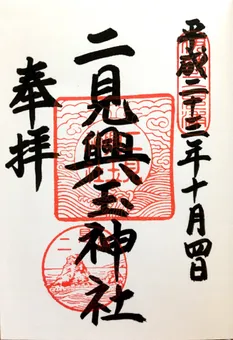 平成二十三年十月四日
二見興玉神社
奉拝